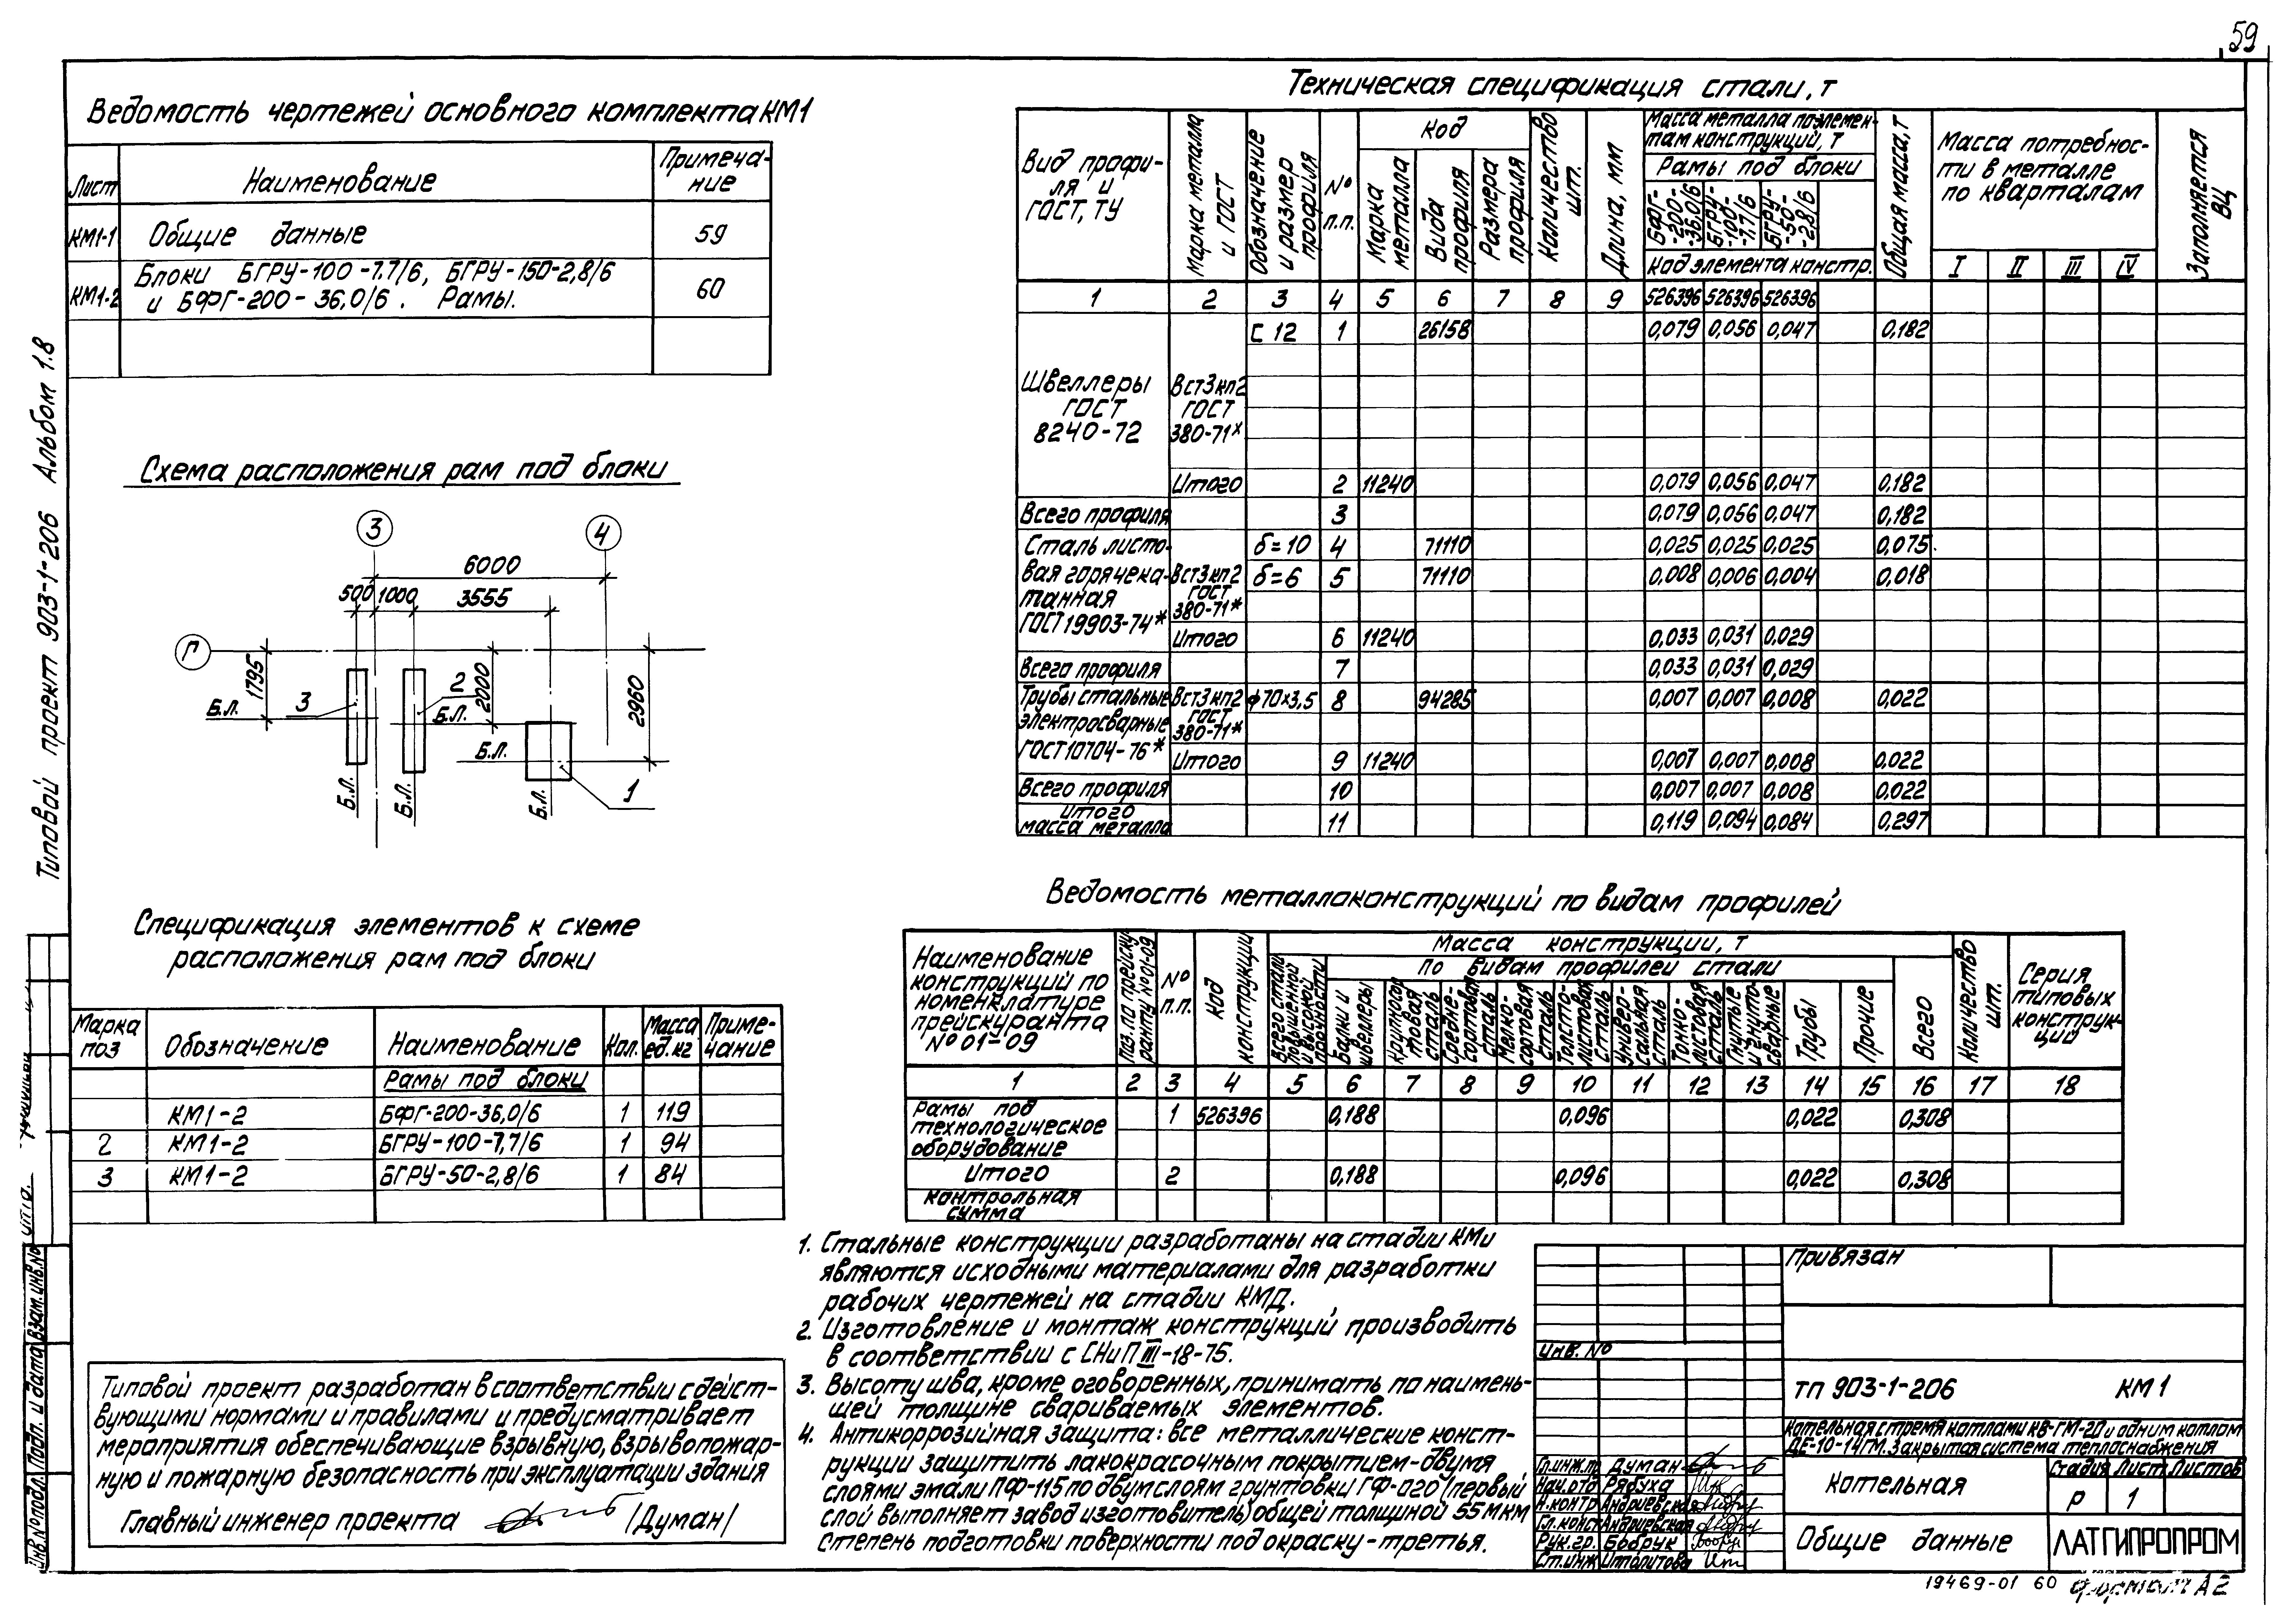 59
Ведомость чертежей основного комплекта КМ1
Лист | Наименование | Примеча-
ние
КМ1-1 | Общие данные | 59
КМ1-2 | Блоки БГРУ-100-7.7/6, БГРУ-150-2,8/6
и БФГ-200-36,0/6. Рамы. | 60
Типовой проект 903-1-206 Альбом 1.8
Схема расположения рам под блоки
3
4
6000
500
1000
3555
Г
1795
2000
2960
Б.Л.
3
2
Б.Л.
Б.Л.
1
Б.Л.
Б.Л.
Б.Л.
Спецификация элементов к схеме
расположения рам под блоки
Марка поз | Обозначение | Наименование | Кол. | Масса ед.кг | Приме-
чание
Рамы под блоки
КМ1-2 | БФГ-200-36,0/6 | 1 | 119
2 | КМ1-2 | БГРУ-100-7,7/6 | 1 | 94
3 | КМ1-2 | БГРУ-50-2,8/6 | 1 | 84
Типовой проект разработан в соответствии с дейст-
вующими нормами и правилами и предусматривает
мероприятия обеспечивающие взрывную, взрывопожар-
ную и пожарную безопасность при эксплуатации здания
Главный инженер проекта /Думан/
Инв.№подл. Подп. и дата Взам.инв.№
Техническая спецификация стали, т
Вид профи-
ля и
ГОСТ, ТУ
Марка металла
и ГОСТ
Обозначение
и размер
профиля
№
п.п.
Код
Марка
металла
Вида
профиля
Размера
профиля
Количество
шт.
Длина, мм
Масса металла по элемен-
там конструкций, т
Рамы под блоки
БФГ-
-200-
-36,0/6
БГРУ-
-100-
-7,7/6
БГРУ-
-50-
-2,8/6
Код элемента констр.
Общая масса, т
Масса потребнос-
ти в металле
по кварталам
I II III IV
Заполняется
ВЦ
1 2 3 4 5 6 7 8 9 526396 526396 526396
С 12 1 26158 0,079 0,056 0,047 0,182
Швеллеры
ГОСТ
8240-72
Вст3кп2
ГОСТ
380-71х
Итого 2 11240 0,079 0,056 0,047 0,182
Всего профиля 3 0,079 0,056 0,047 0,182
Сталь листо-
вая горячека-
танная
ГОСТ 19903-74*
Вст3кп2
ГОСТ
380-71*
δ=10 4 71110 0,025 0,025 0,025 0,075
δ=6 5 71110 0,008 0,006 0,004 0,018
Итого 6 11240 0,033 0,031 0,029
Всего профиля 7 0,033 0,031 0,029
Трубы стальные
электросварные
ГОСТ 10704-76*
Вст3кп2
ГОСТ
380-71*
ф70х3,5 8 94285 0,007 0,007 0,008 0,022
Итого 9 11240 0,007 0,007 0,008 0,022
Всего профиля 10 0,007 0,007 0,008 0,022
Итого
масса металла 11 0,119 0,094 0,084 0,297
Ведомость металлоконструкций по видам профилей
Наименование
конструкций по
номенклатуре
прейскуранта
№ 01-09
Поз. по прейску-
ранту №01-09
№
п.п.
Код
конструкции
Масса конструкции, т
Всего стали
повышенной
и высокой
прочности
По видам профилей стали
Балки и
швеллеры
Крупносор-
товая
сталь
Средне-
сортовая
сталь
Мелко-
сортовая
сталь
Толсто-
листовая
сталь
Универ-
сальная
сталь
Тонко-
листовая
сталь
Гнутые
и гнуто-
сварные
Трубы
Прочие
Всего
Количество
шт.
Серия
типовых
конструк-
ций
1 2 3 4 5 6 7 8 9 10 11 12 13 14 15 16 17 18
Рамы под
технологическое
оборудование
1 526396 0,188 0,096 0,022 0,308
Итого 2 0,188 0,096 0,022 0,308
контрольная
сумма
1. Стальные конструкции разработаны на стадии КМ и
являются исходными материалами для разработки
рабочих чертежей на стадии КМД.
2. Изготовление и монтаж конструкций производить
в соответствии с СНиП III-18-75.
3. Высоту шва, кроме оговоренных, принимать по наимень-
шей толщине свариваемых элементов.
4. Антикоррозийная защита: все металлические конст-
рукции защитить лакокрасочным покрытием-двумя
слоями эмали ПФ-115 по двум слоям грунтовки ГФ-020 (первый
слой выполняет завод изготовитель) общей толщиной 55 мкм
Степень подготовки поверхности под окраску-третья.
Привязан
Инв. №
ТП 903-1-206 КМ1
Котельная с тремя котлами КВ-ГМ-20 и одним котлом
ДЕ-10-14ГМ. Закрытая система теплоснабжения
Гл.инж.пр Думан
Нач.отд Рябуха
Н.контр Андриевская
Гл.конст Андриевская
Рук.гр. Бобрук
Ст.инж Ипалитова
Котельная
Стадия Лист Листов
Р 1
Общие данные
ЛАТГИПРОПРОМ
19469-01 60 Формат А2